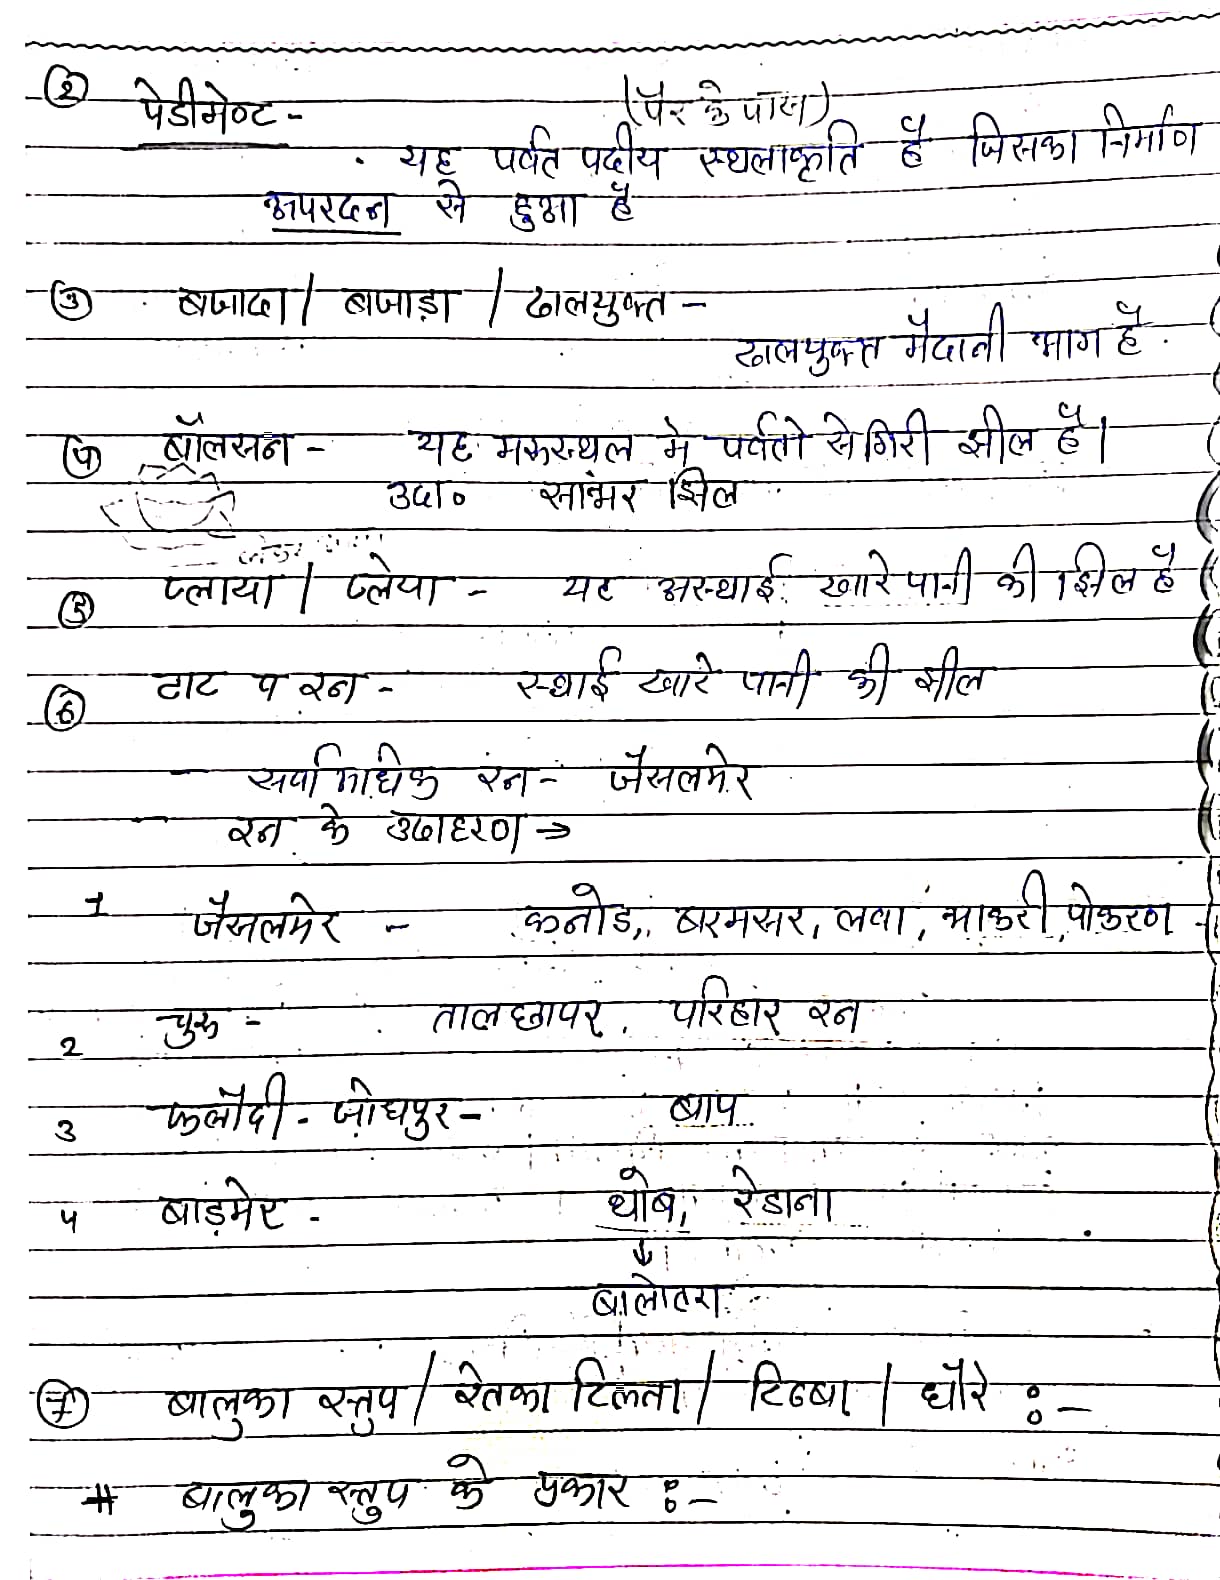 ② पेडीमेण्ट - (पैर के पास)
यह पर्वत पदीय स्थलाकृति है जिसका निर्माण
अपरदन से हुआ है
③ बजादा / बाजाड़ा / ढालयुक्त -
ढालयुक्त मैदानी भाग है.
④ बॉलसन - यह मरूस्थल मे पर्वतो से गिरी झील है।
उदा० सांभर झिल
⑤ प्लाया / प्लेया - यह अस्थाई खारे पानी की झिल है
⑥ टाट व रन - स्थाई खारे पानी की झील
- सर्वाधिक रन - जैसलमेर
- रन के उदाहरण →
1 जैसलमेर - कनोड, बरमसर, लवा, भाकरी, पोकरण
2 चुरू - तालछापर, परिहार रन
3 फलौदी - जोधपुर - बाप
4 बाड़मेर - थोब, रेडाना
↓
बालोतरा
⑦ बालुका स्तुप / रेतका टिलता / टिब्बा / धौरे :-
# बालुका स्तुप के प्रकार :-